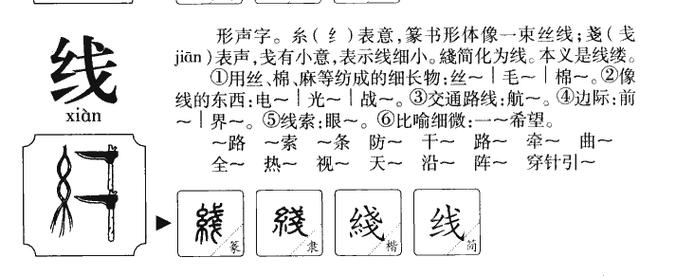 线
xiàn
形声字。糸(纟)表意,篆书形体像一束丝线;戔(戋
jiān)表声,戋有小意,表示线细小。綫简化为线。本义是线缕。
①用丝、棉、麻等纺成的细长物:丝～｜毛～｜棉～。②像
线的东西:电～｜光～｜战～。③交通路线:航～。④边际:前
～｜界～。⑤线索:眼～。⑥比喻细微:一～希望。
～路 ～索 ～条 防～ 干～ 路～ 牵～ 曲～
全～ 热～ 视～ 天～ 沿～ 阵～ 穿针引～
綫 篆 綫 隶 綫 楷 线 简